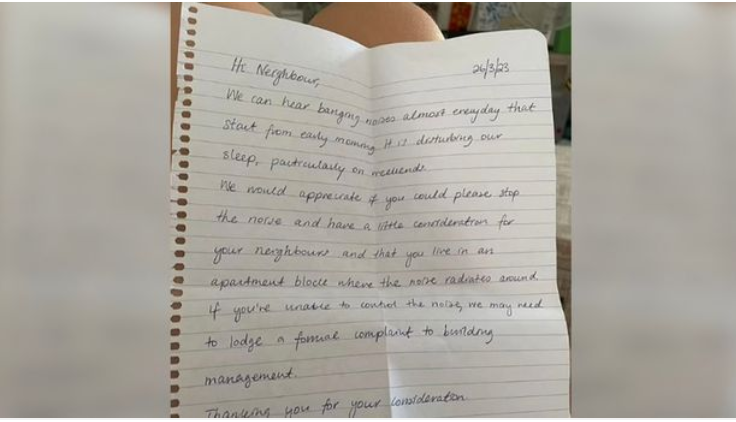 26/3/23
Hi Neighbour,
We can hear banging noises almost everyday that
start from early morning. It is disturbing our
sleep, particularly on weekends.
We would appreciate if you could please stop
the noise and have a little consideration for
your neighbours and that you live in an
apartment block where the noise radiates around
if you're unable to control the noise, we may need
to lodge a formal complaint to building
management.
Thanking you for your consideration